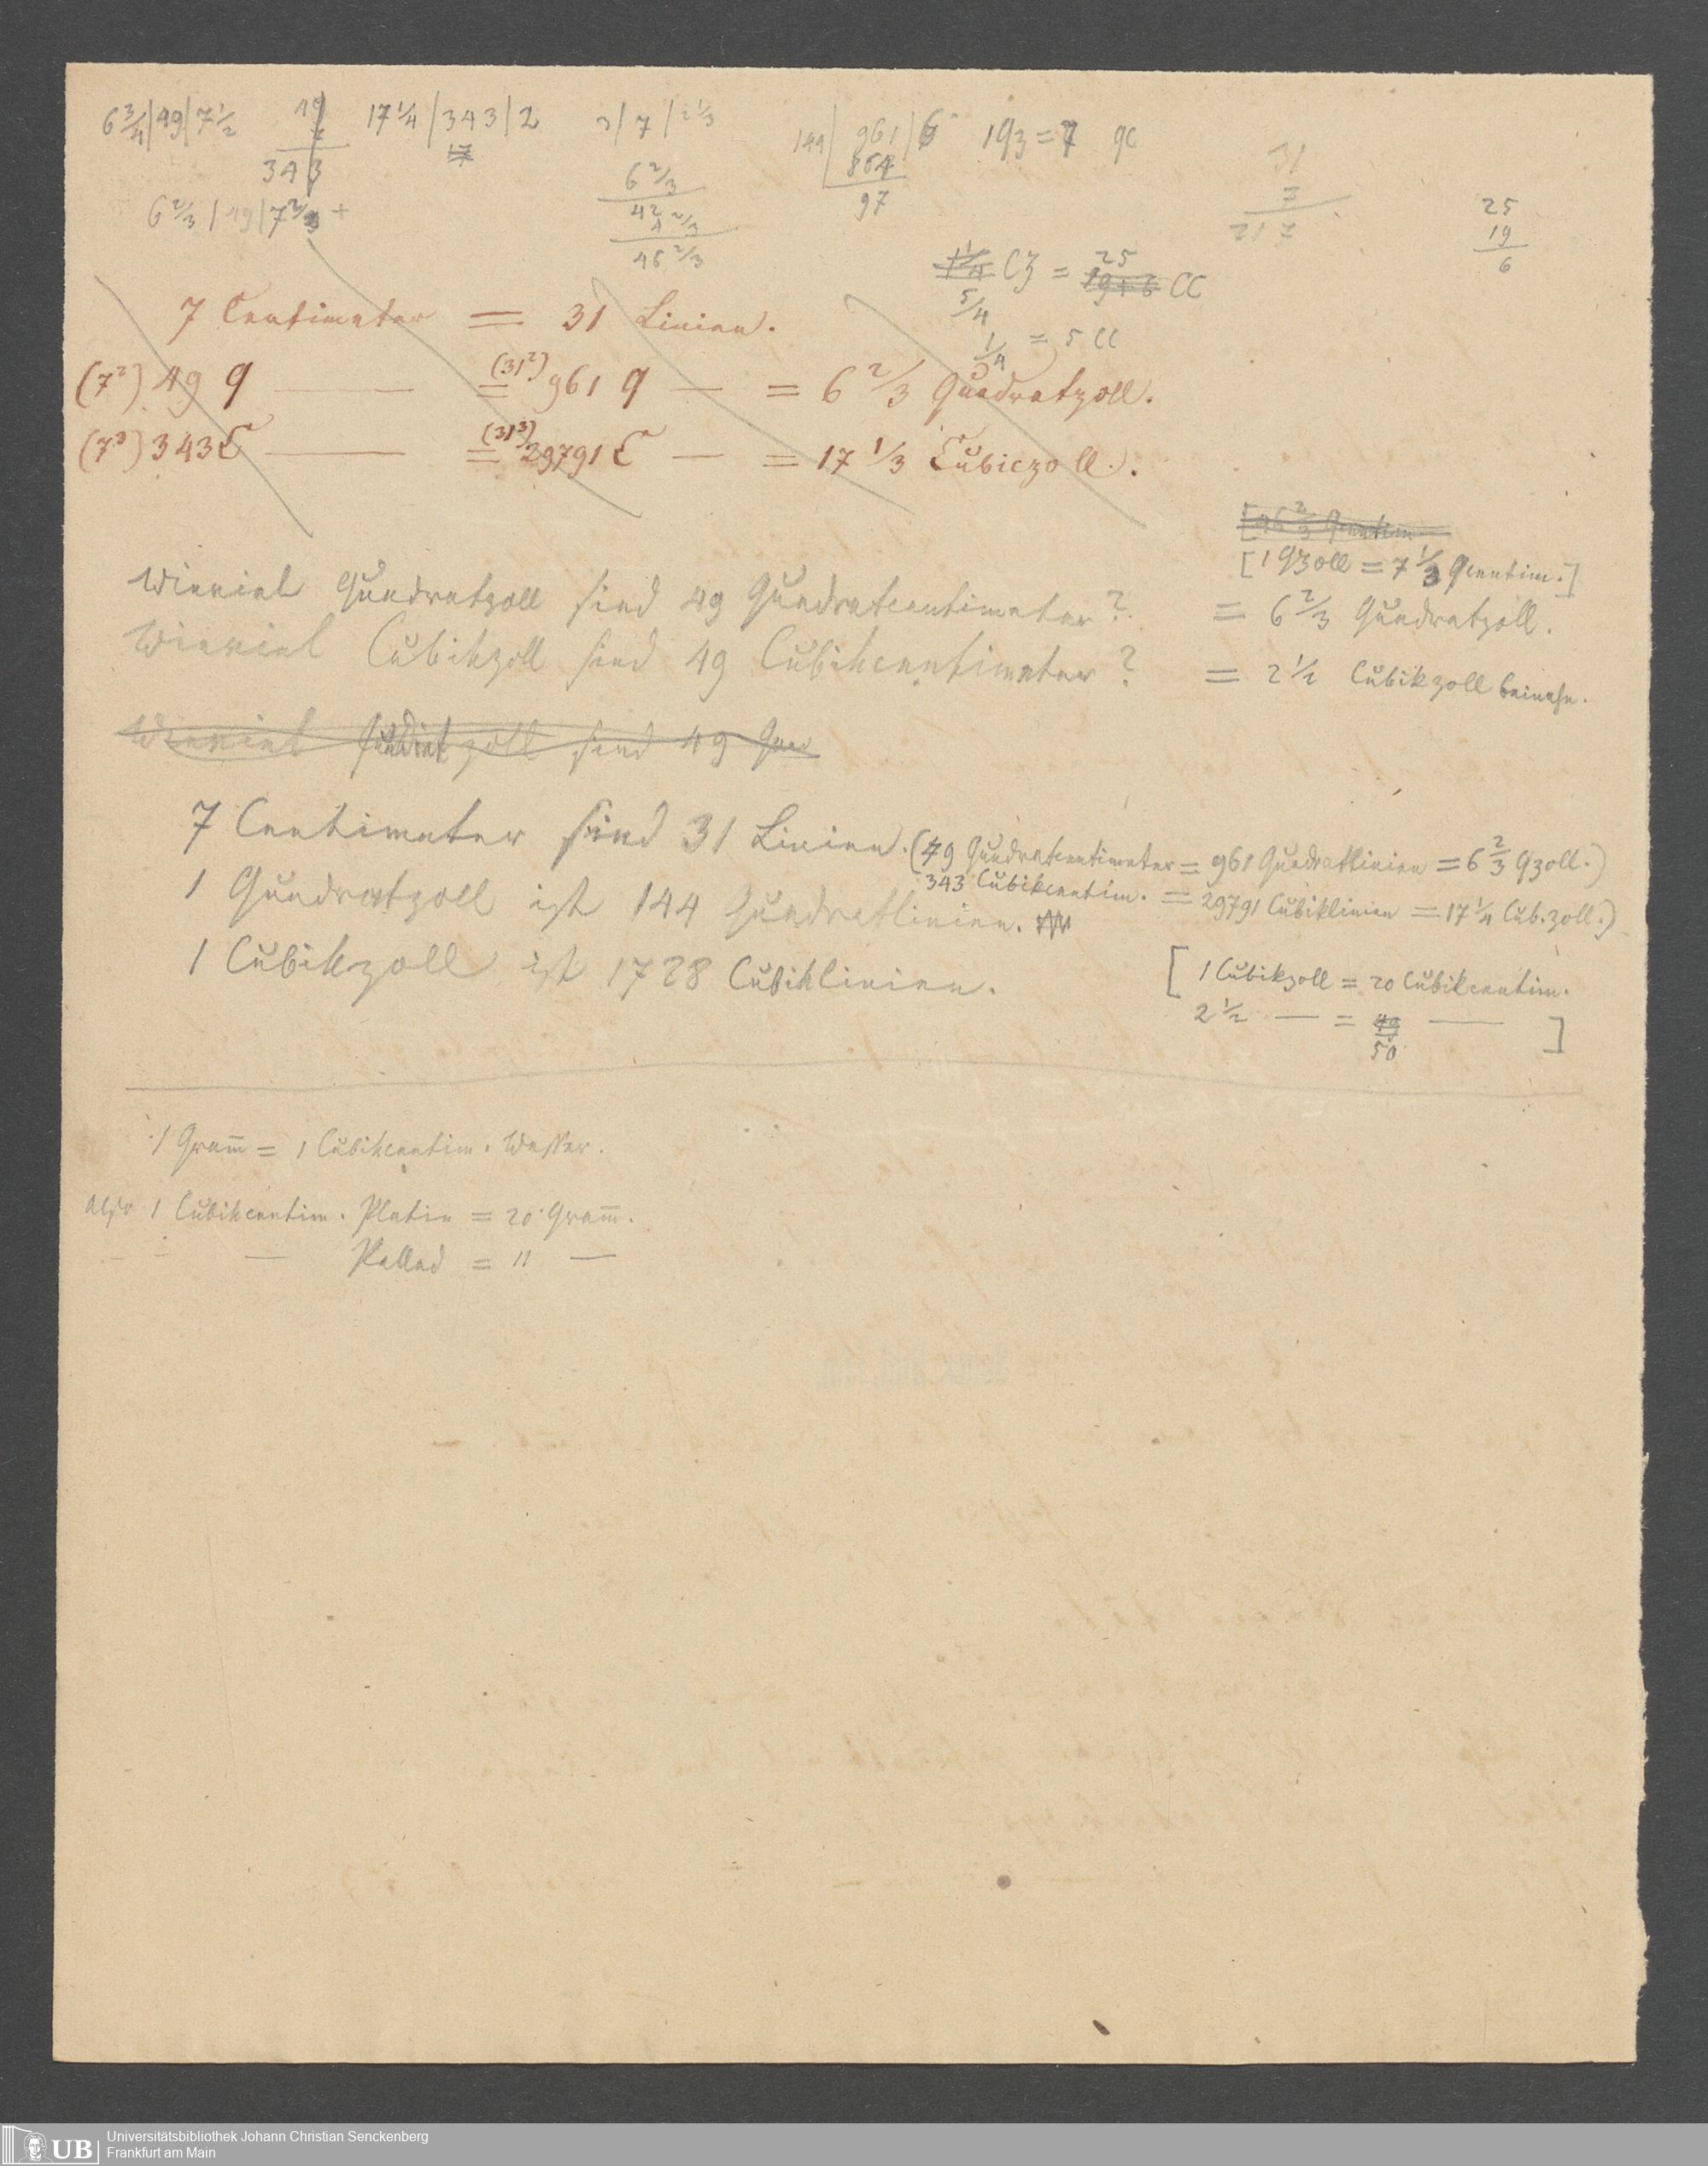 6 3/4 | 49 | 7 1/2
49
7
343
17 1/4 | 343 | 2
17
3 | 7 | 2 1/3
6 2/3
42
4 2/3
46 2/3
144 | 961 | 6
864
97
1q3 = 7 qC
31
7
217
25
19
6
6 2/3 | 49 | 7 2/3 +
1 1/4 C3 = 19+6 CC
25
5/4
1/4 = 5 CC
7 Centimeter = 31 Linien.
(7²) 49 q — = (31²) 961 q — = 6 2/3 Quadratzoll.
(7³) 343 C — = (31³) 29791 C — = 17 1/3 Cubiczoll.
[1 Qzoll = 7 1/3 Qcentim.]
Wieviel Quadratzoll sind 49 Quadratcentimeter? = 6 2/3 Quadratzoll.
Wieviel Cubikzoll sind 49 Cubikcentimeter? = 2 1/2 Cubikzoll beinahe.
Wieviel Quadratzoll sind 49 Quad
7 Centimeter sind 31 Linien. (49 Quadratcentimeter = 961 Quadratlinien = 6 2/3 Qzoll.)
343 Cubikcentim. = 29791 Cubiklinien = 17 1/4 Cub.zoll.)
1 Quadratzoll ist 144 Quadratlinien.
1 Cubikzoll ist 1728 Cubiklinien.
[1 Cubikzoll = 20 Cubikcentim.
2 1/2 — = 49 — ]
50
1 Gram̅ = 1 Cubikcentim. Wasser.
also 1 Cubikcentim. Platin = 20 Gram̅.
— — — Pallad = 11 —
UB
Universitätsbibliothek Johann Christian Senckenberg
Frankfurt am Main